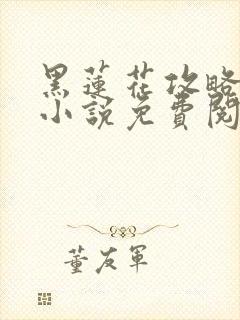 黑蓮花攻略
小說免費閱
董友軍